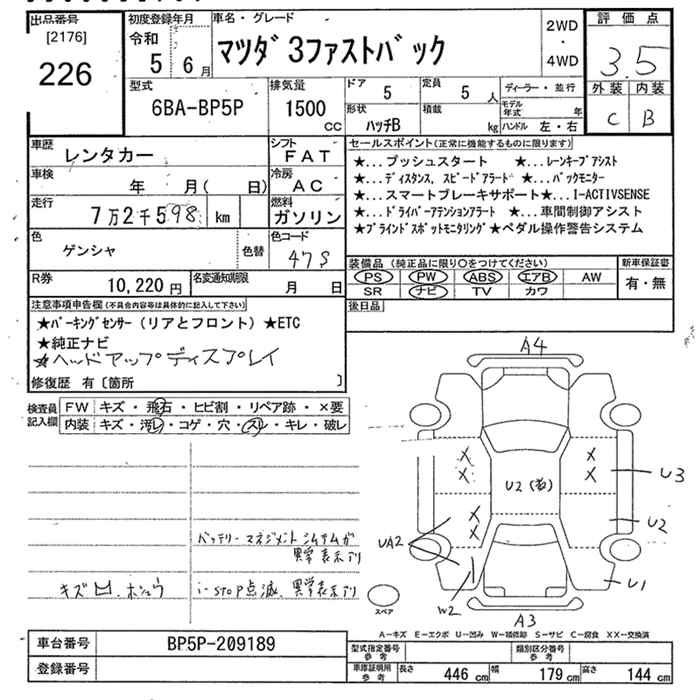 出品番号
[2176]
226
初度登録年月
令和
5 6月
車名・グレード
マツダ 3ファストバック
2WD
・
4WD
評価点
3.5
外装 内装
C B
型式
6BA-BP5P
排気量
1500
CC
ドア
5
定員
5 人
形状
ハッチB
積載
kg
ディーラー・並行
モデル年式 年
ハンドル 左・右
車歴
レンタカー
シフト
FAT
車検
年 月( 日)
冷房
AC
走行
7万2千598 km
燃料
ガソリン
色
ゲンシャ
色替
色コード
47S
R券
10,220 円
名変通知期限
月 日
セールスポイント(正常に機能するものに限ります)
★...プッシュスタート ★...レーンキープアシスト
★...ディスタンス、スピードアラート ★...バックモニター
★...スマートブレーキサポート★...I-ACTIVSENSE
★...ドライバーアテンションアラート ★...車間制御アシスト
★ブラインドスポットモニタリング★ペダル操作警告システム
装備品(純正品に限り○をつけてください)
新車保証書
PS PW ABS エアB AW
SR ナビ TV カワ
有・無
後日品
注意事項申告欄(不具合内容等は具体的に記入して下さい)
★パーキングセンサー(リアとフロント)★ETC
★純正ナビ
★ヘッドアップディスプレイ
修復歴 有〔箇所 〕
検査員記入欄
FW キズ・飛石・ヒビ割・リペア跡・×要
内装 キズ・汚レ・コゲ・穴・スレ・キレ・破レ
バッテリーマネジメントシステムが
異常表示アリ
キズ 凹、ホシュウ
i-stop点滅、異常表示アリ
A4
U3
U2
U2(右)
UA2
U1
W2
A3
スペア
A－キズ E－エクボ U－凹み W－補修跡 S－サビ C－腐食 XX－交換済
車台番号
BP5P-209189
登録番号
型式指定番号
参考
類別区分番号
参考
車庫証明用
参考
長さ 446 cm 幅 179 cm 高さ 144 cm